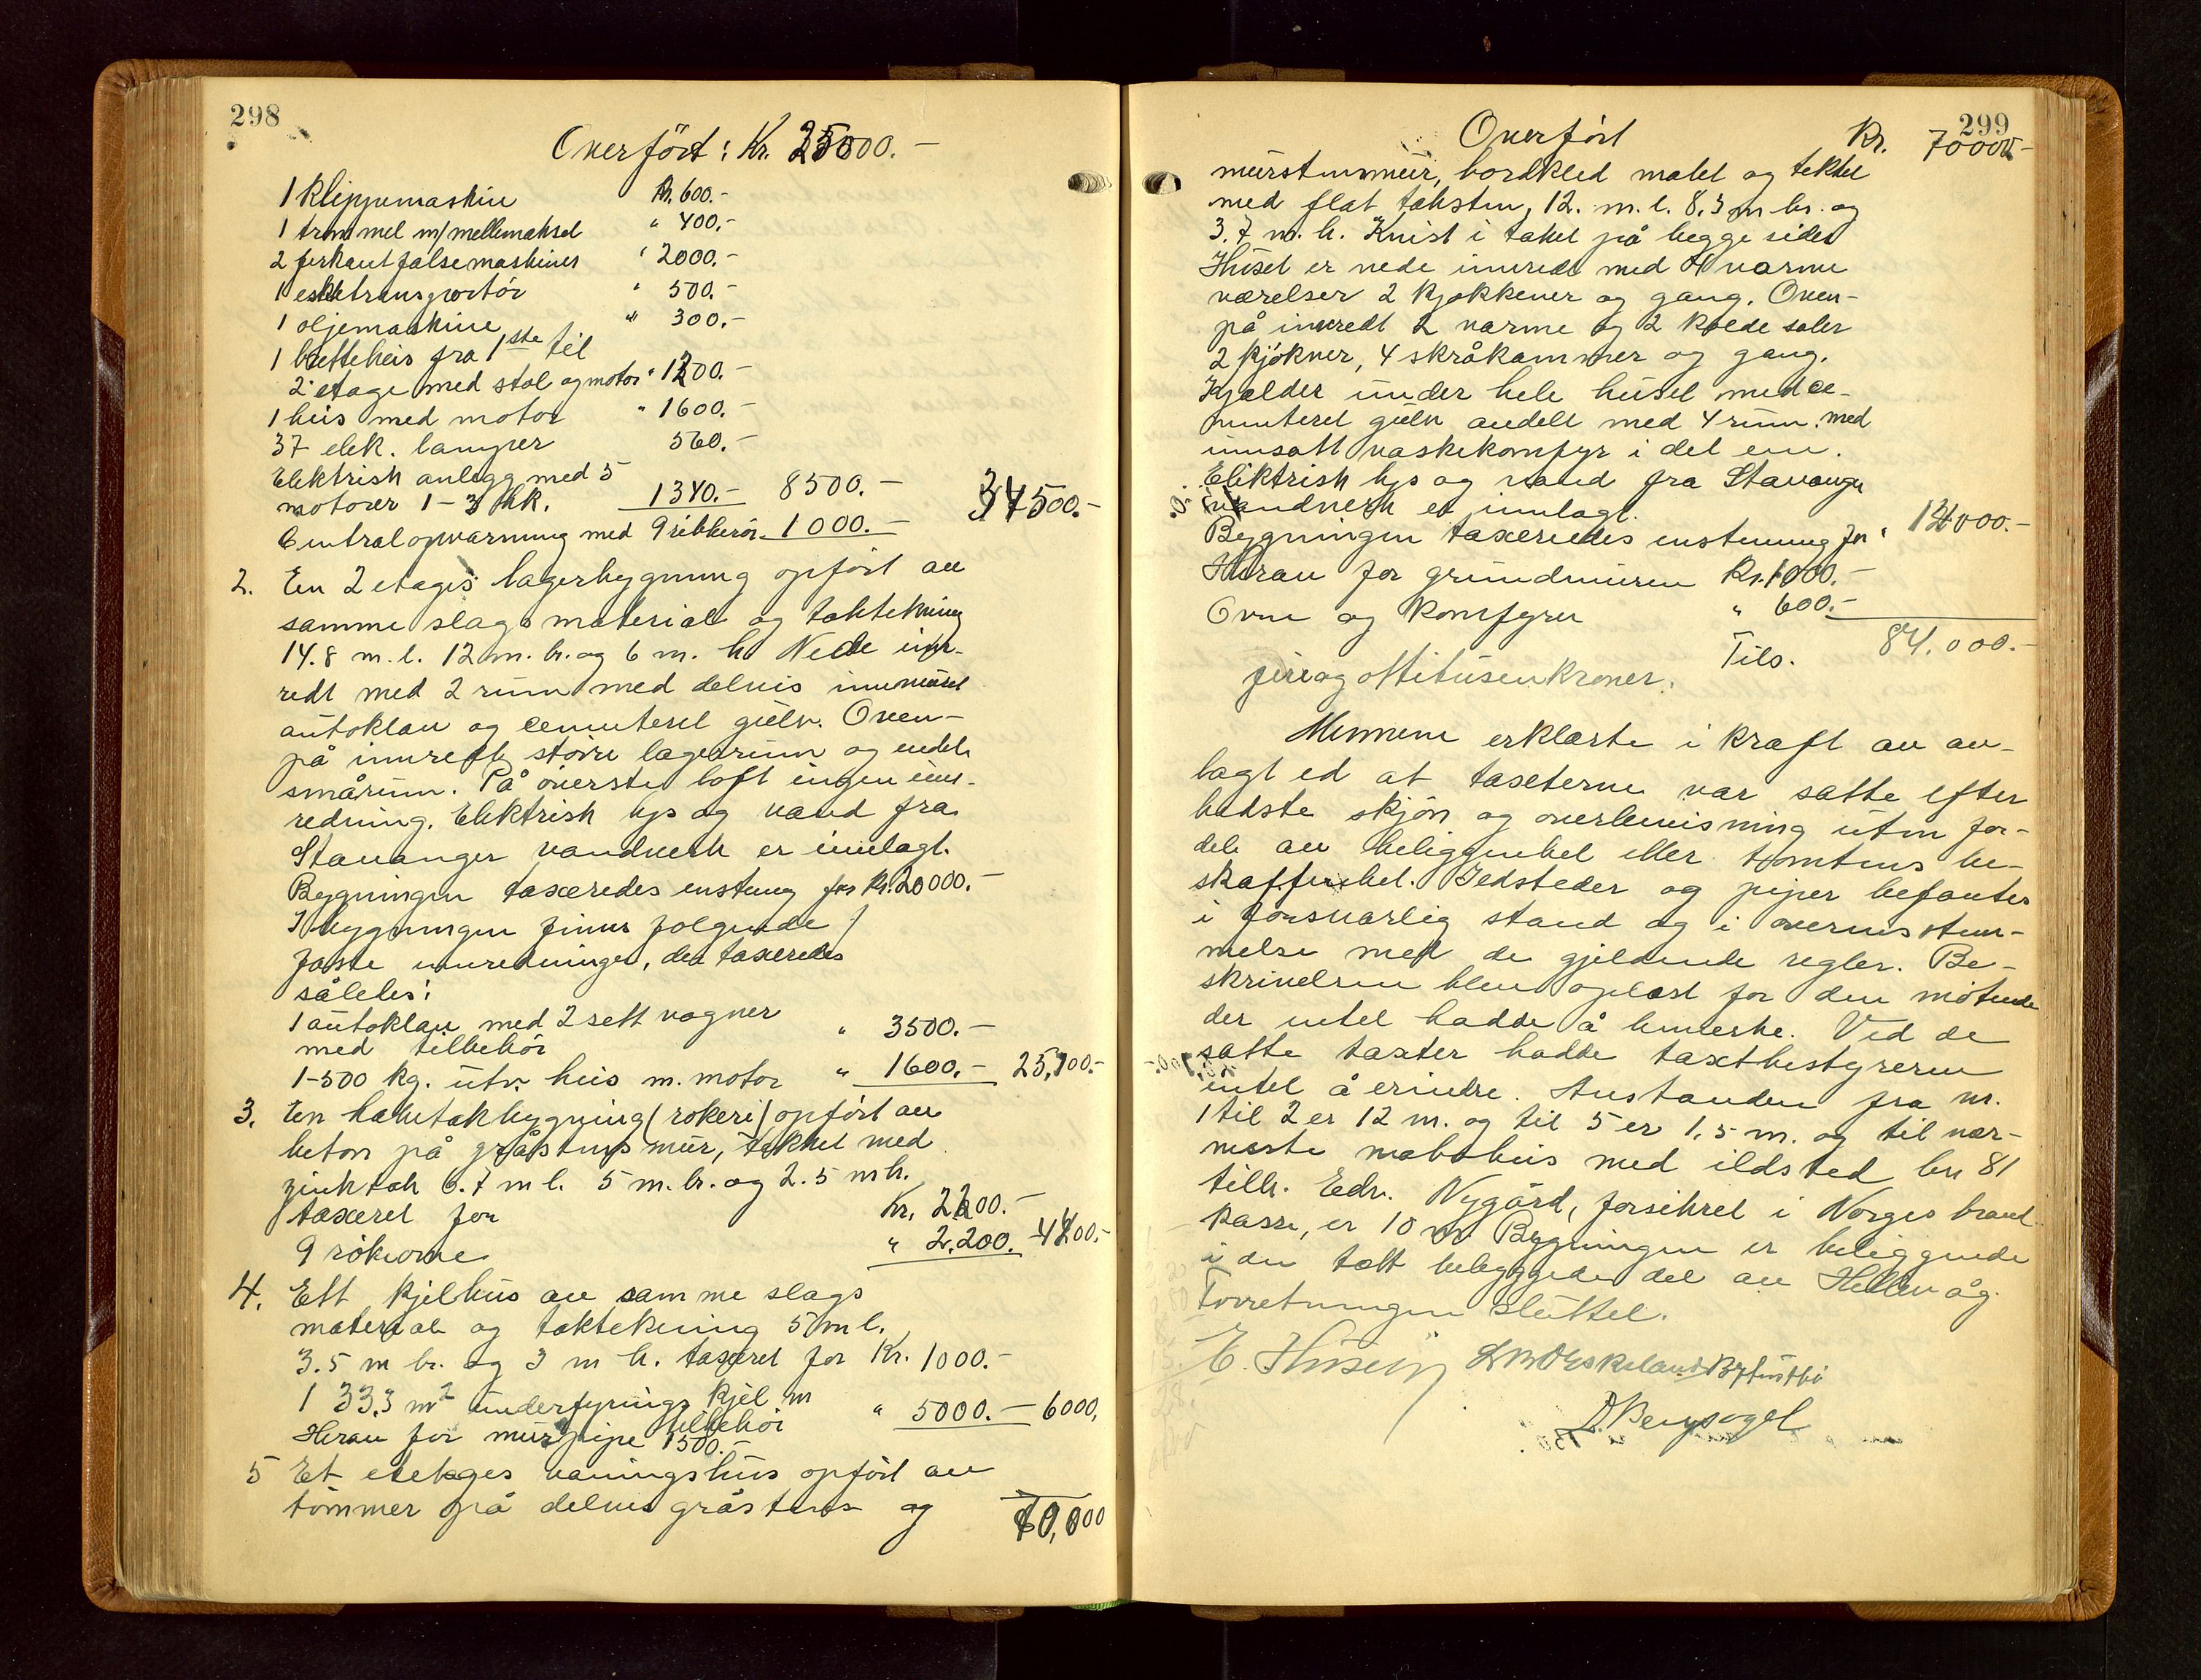 298
Overført: Kr. 25000.-
1 Klippemaskin Kr. 600.-
1 trommel m/mellemaksel " 400.-
2 firkantfalsemaskiner " 2000.-
1 esketransportør " 500.-
1 oljemaskine " 300.-
1 bretteheis fra 1ste til
2. etage med stol og motor " 1200.-
1 heis med motor " 1600.-
37 elek. lamper 560.-
Elektrisk anlegg med 5
motorer 1-3 hk. 1340.- 8500.-
Centralopvarmning med 9 ribberør. 1000.- 34500.-
2. En 2 etages lagerbygning opført av
samme slags material og taktekning
14.8 m. l. 12 m. br. og 6 m. h. Nede inn-
redt med 2 rum med delvis innmuret
autoklav og cementeret gulv. Oven-
på innredt større lagerrum og endel
smårum. På øverste loft ingen inn-
redning. Elektrisk lys og vand fra
Stavanger vandverk er innlagt.
Bygningen taxeredes enstemmig for Kr. 20000.-
I bygningen finnes følgende
faste innredninger, der taxeredes
således:
1 autoklav med 2 sett vogner
med tilbehør " 3500.-
1-500 kg. utv. heis m. motor " 1600.- 25,100.-
3. En halvtakbygning (røkeri) opført av
beton på gråstens mur, tekket med
zinktak 6.7 m l. 5 m. br. og 2.5 m h.
taxeret for Kr. 2200.-
9 rökovne " 2.200. 4400.-
4. Ett kjelhus av samme slags
material og taktekning 5 m l.
3.5 m br. og 3 m h. taxeret for Kr. 1000.-
1 33,3 m² underfyrings kjel m
tilbehör " 5000.- 6000,
Herav for murpipe 1500.-
5 Et etetages våningshus opført av
tømmer på delvis gråstens og
70,000
299
Overført Kr. 70000-
murstensmur, bordkled malet og tekket
med flat taksten, 12. m. l. 8.3 m br. og
3.7 m. h. Knist i taket på begge sider
Huset er nede innredt med 4 varme
værelser 2 kjøkkener og gang. Oven-
på innredt 2 varme og 2 kolde saler
2 kjøkner, 4 skråkammer og gang.
Kjelder under hele huset med ce-
menteret gulv avdelt med 4 rum. med
innsatt vaskekomfyr i det ene.
Elektrisk lys og vand fra Stavanger
vandverk er innlagt.
Bygningen taxeredes enstemmig for " 14000.-
Herav for grundmuren Kr. 1000.-
Ovne og komfyrer " 600.-
Tils. 84.000.-
fireogottitusen kroner.
Mennene erklærte i kraft av av-
lagt ed at taxterne var satte efter
bedste skjön og overbevisning uten for-
dele av beliggenhet eller tomtens be-
skaffenhet. Ildsteder og piper befantes
i forsvarlig stand og i overensstem-
melse med de gjeldende regler. Be-
skrivelsen blev oplæst for den møtende
der intet hadde å bemerke. Ved de
satte taxter hadde taxtbestyreren
intet å erindre. Avstanden fra nr.
1 til 2 er 12 m. og til 5 er 1,5 m. og til nær-
meste nabohus med ildsted bn 81
tilh. Edv. Nygård, forsikret i Norges brand
kasse, er 10 m. Bygningen er beliggende
i den tætt bebyggede del av Hillevåg.
Forretningen sluttet.
E. Husebø
D. Bergsagel